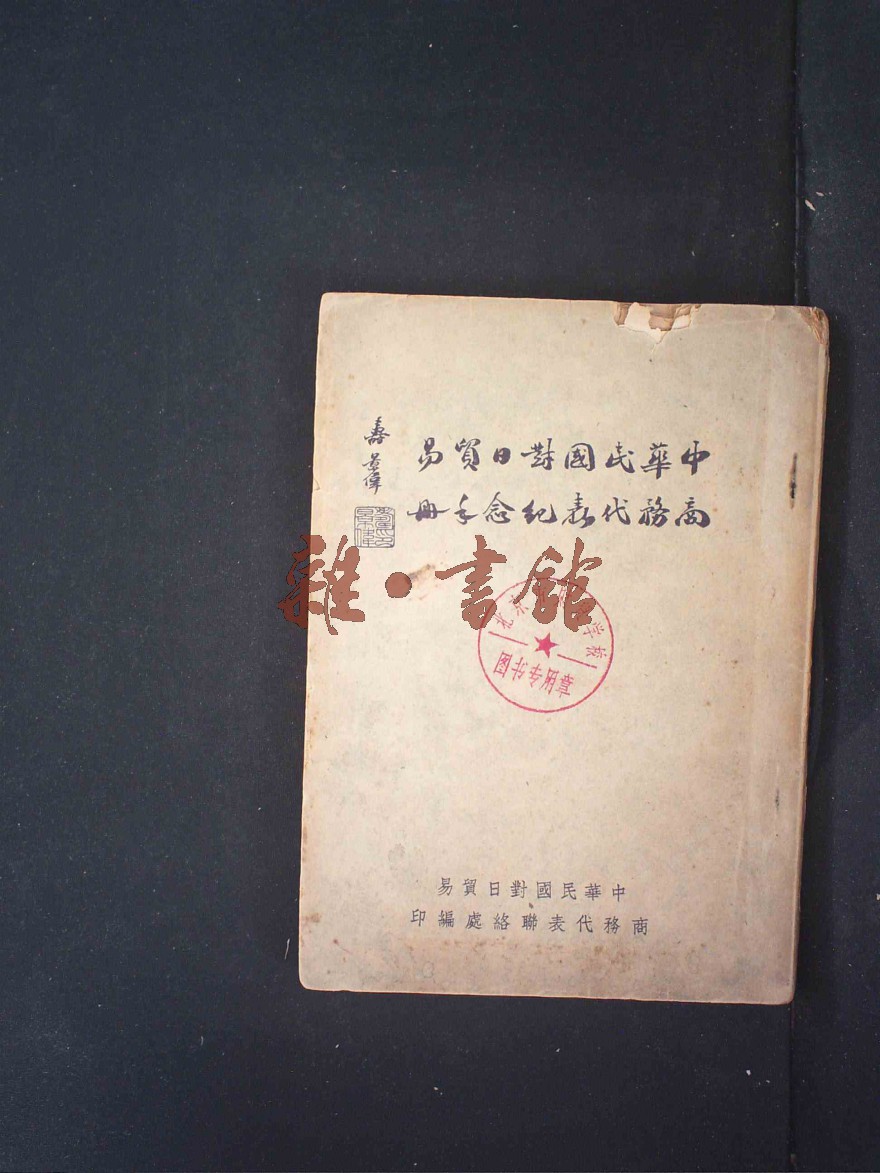 中華民國對日貿易
商務代表紀念手冊
壽景偉
雜·書館
北京
学校
图书专用章
中華民國對日貿易
商務代表聯絡處編印